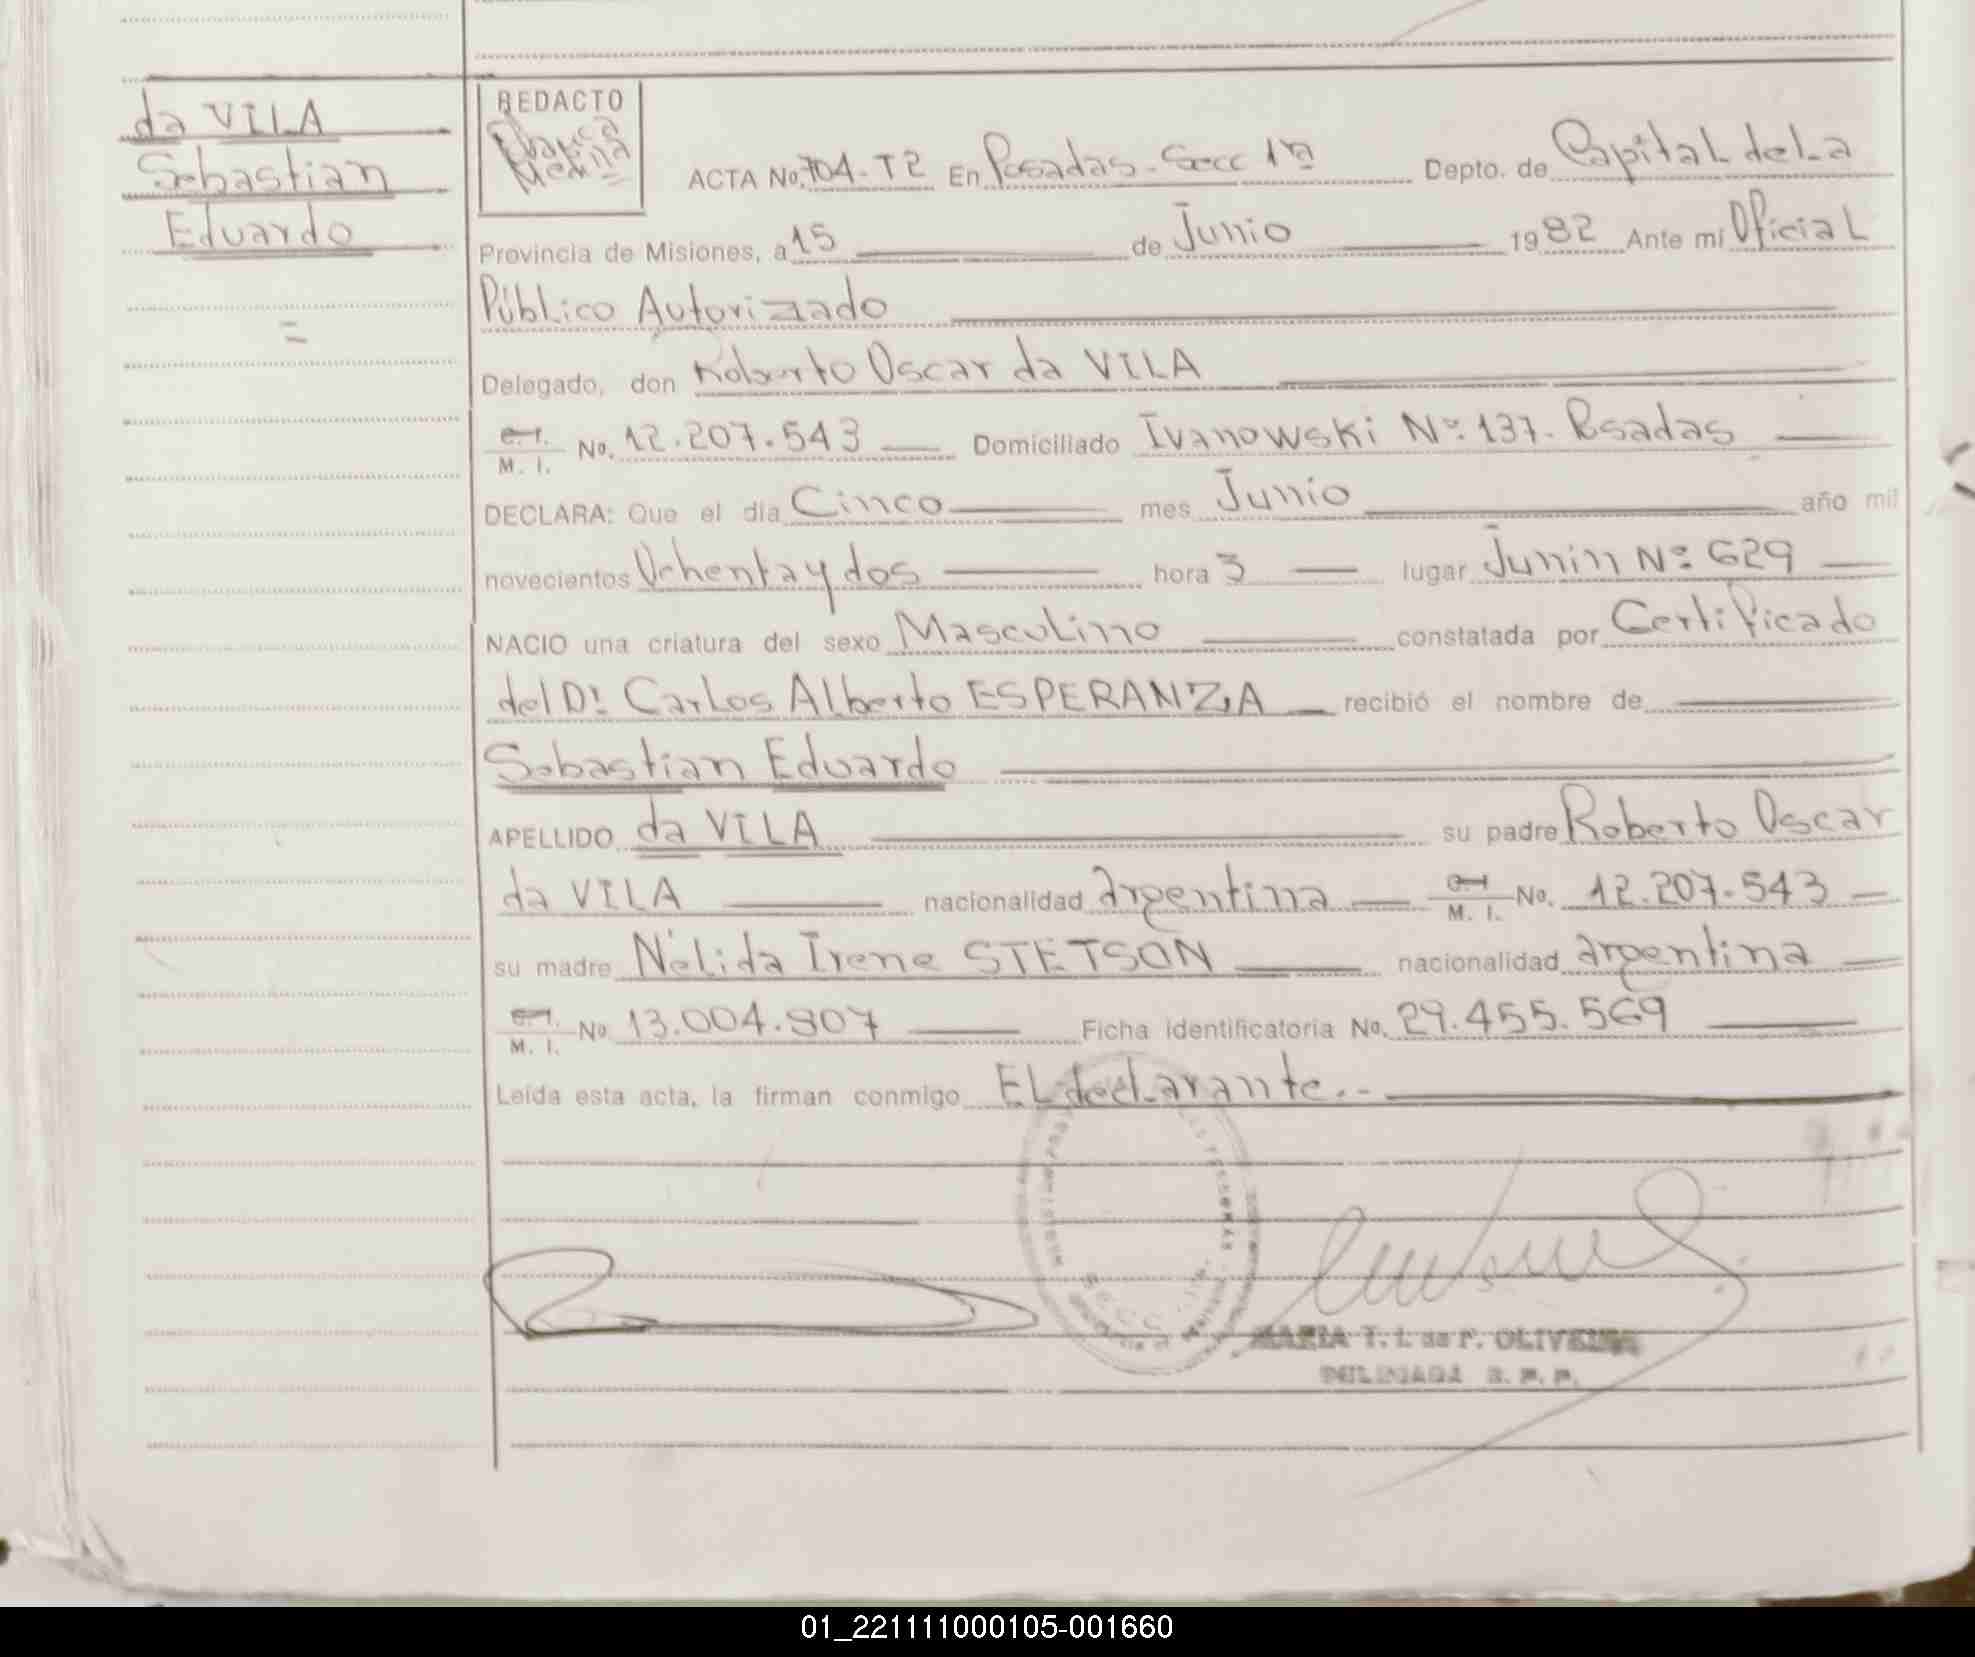 da VILA
Sebastian
Eduardo
=
REDACTO
Medina
ACTA No. 704-T2 En Posadas-Secc 1ª Depto. de Capital de La
Provincia de Misiones, a 15 de Junio 1982 Ante mí Oficial
Público Autorizado
Delegado, don Roberto Oscar da VILA
C.I. M. I. No. 12.207.543 Domiciliado Ivanowski Nº 137. Posadas
DECLARA: Que el día Cinco mes Junio año mil
novecientos Ochenta y dos hora 3 lugar Junín Nº 629
NACIO una criatura del sexo Masculino constatada por Certificado
del Dr Carlos Alberto ESPERANZA recibió el nombre de
Sebastian Eduardo
APELLIDO da VILA su padre Roberto Oscar
da VILA nacionalidad argentina C.I. M. I. No. 12.207.543
su madre Nélida Irene STETSON nacionalidad argentina
C.I. M. I. No 13.004.807 Ficha identificatoria No. 29.455.569
Leída esta acta, la firman conmigo EL declarante.-
SECC. 1a.
MARIA T. I. de P. OLIVEIRA
DELEGADA R. P. P.
01_221111000105-001660